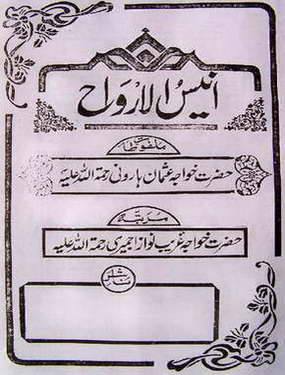 انیسُ الارواح
ملفوظات
حضرت خواجہ عثمان ہارونی رحمۃ اللہ علیہ
مرتبہ
حضرت خواجہ غریب نواز اجمیری رحمۃ اللہ علیہ
ناشر